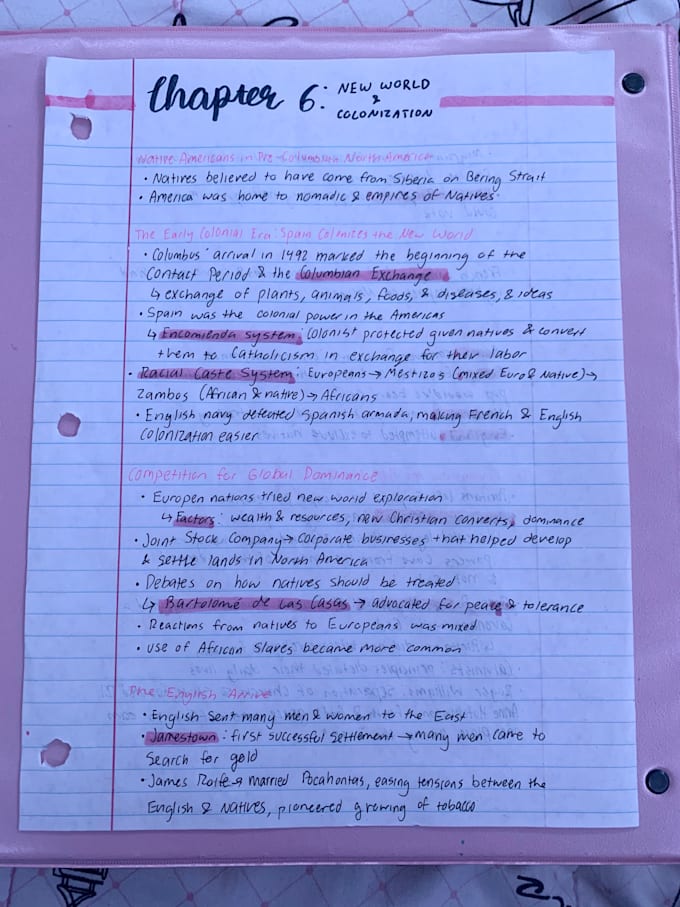 Chapter 6: NEW WORLD
&
COLONIZATION
Native Americans in Pre-Columbian North America
• Natives believed to have come from Siberia on Bering Strait
• America was home to nomadic & empires of Natives
The Early Colonial Era: Spain Colonizes the New World
• Columbus' arrival in 1492 marked the beginning of the
Contact Period & the Columbian Exchange
↳ exchange of plants, animals, foods, & diseases, & ideas
• Spain was the colonial power in the Americas
↳ Encomienda system: Colonist protected given natives & convert
them to Catholicism in exchange for their labor
• Racial Caste System: Europeans → Mestizos (mixed Euro & Native) →
Zambos (African & native) → Africans
• English navy defeated Spanish armada, making French & English
Colonization easier
Competition for Global Dominance
• Europen nations tried new world exploration
↳ Factors: wealth & resources, new Christian converts, dominance
• Joint Stock Company → Corporate businesses that helped develop
& settle lands in North America
• Debates on how natives should be treated
↳ Bartolomé de Las Casas → advocated for peace & tolerance
• Reactions from natives to Europeans was mixed
• use of African Slaves became more common
The English Arrive
• English sent many men & women to the East
• Jamestown: first successful settlement → many men came to
search for gold
• James Rolfe → married Pocahontas, easing tensions between the
English & Natives, pioneered growing of tobacco